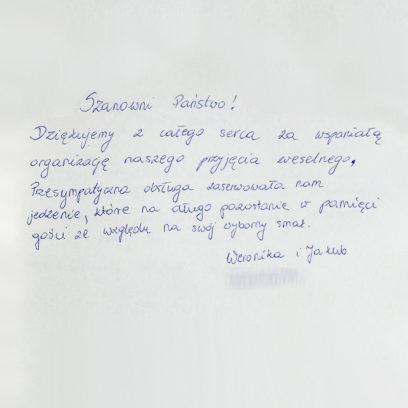 Szanowni Państwo!
Dziękujemy z całego serca za wspaniałą
organizację naszego przyjęcia weselnego,
Przesympatyczna obsługa zaserwowała nam
jedzenie, które na długo pozostanie w pamięci
gości ze względu na swój wyborny smak.
Weronika i Jakub